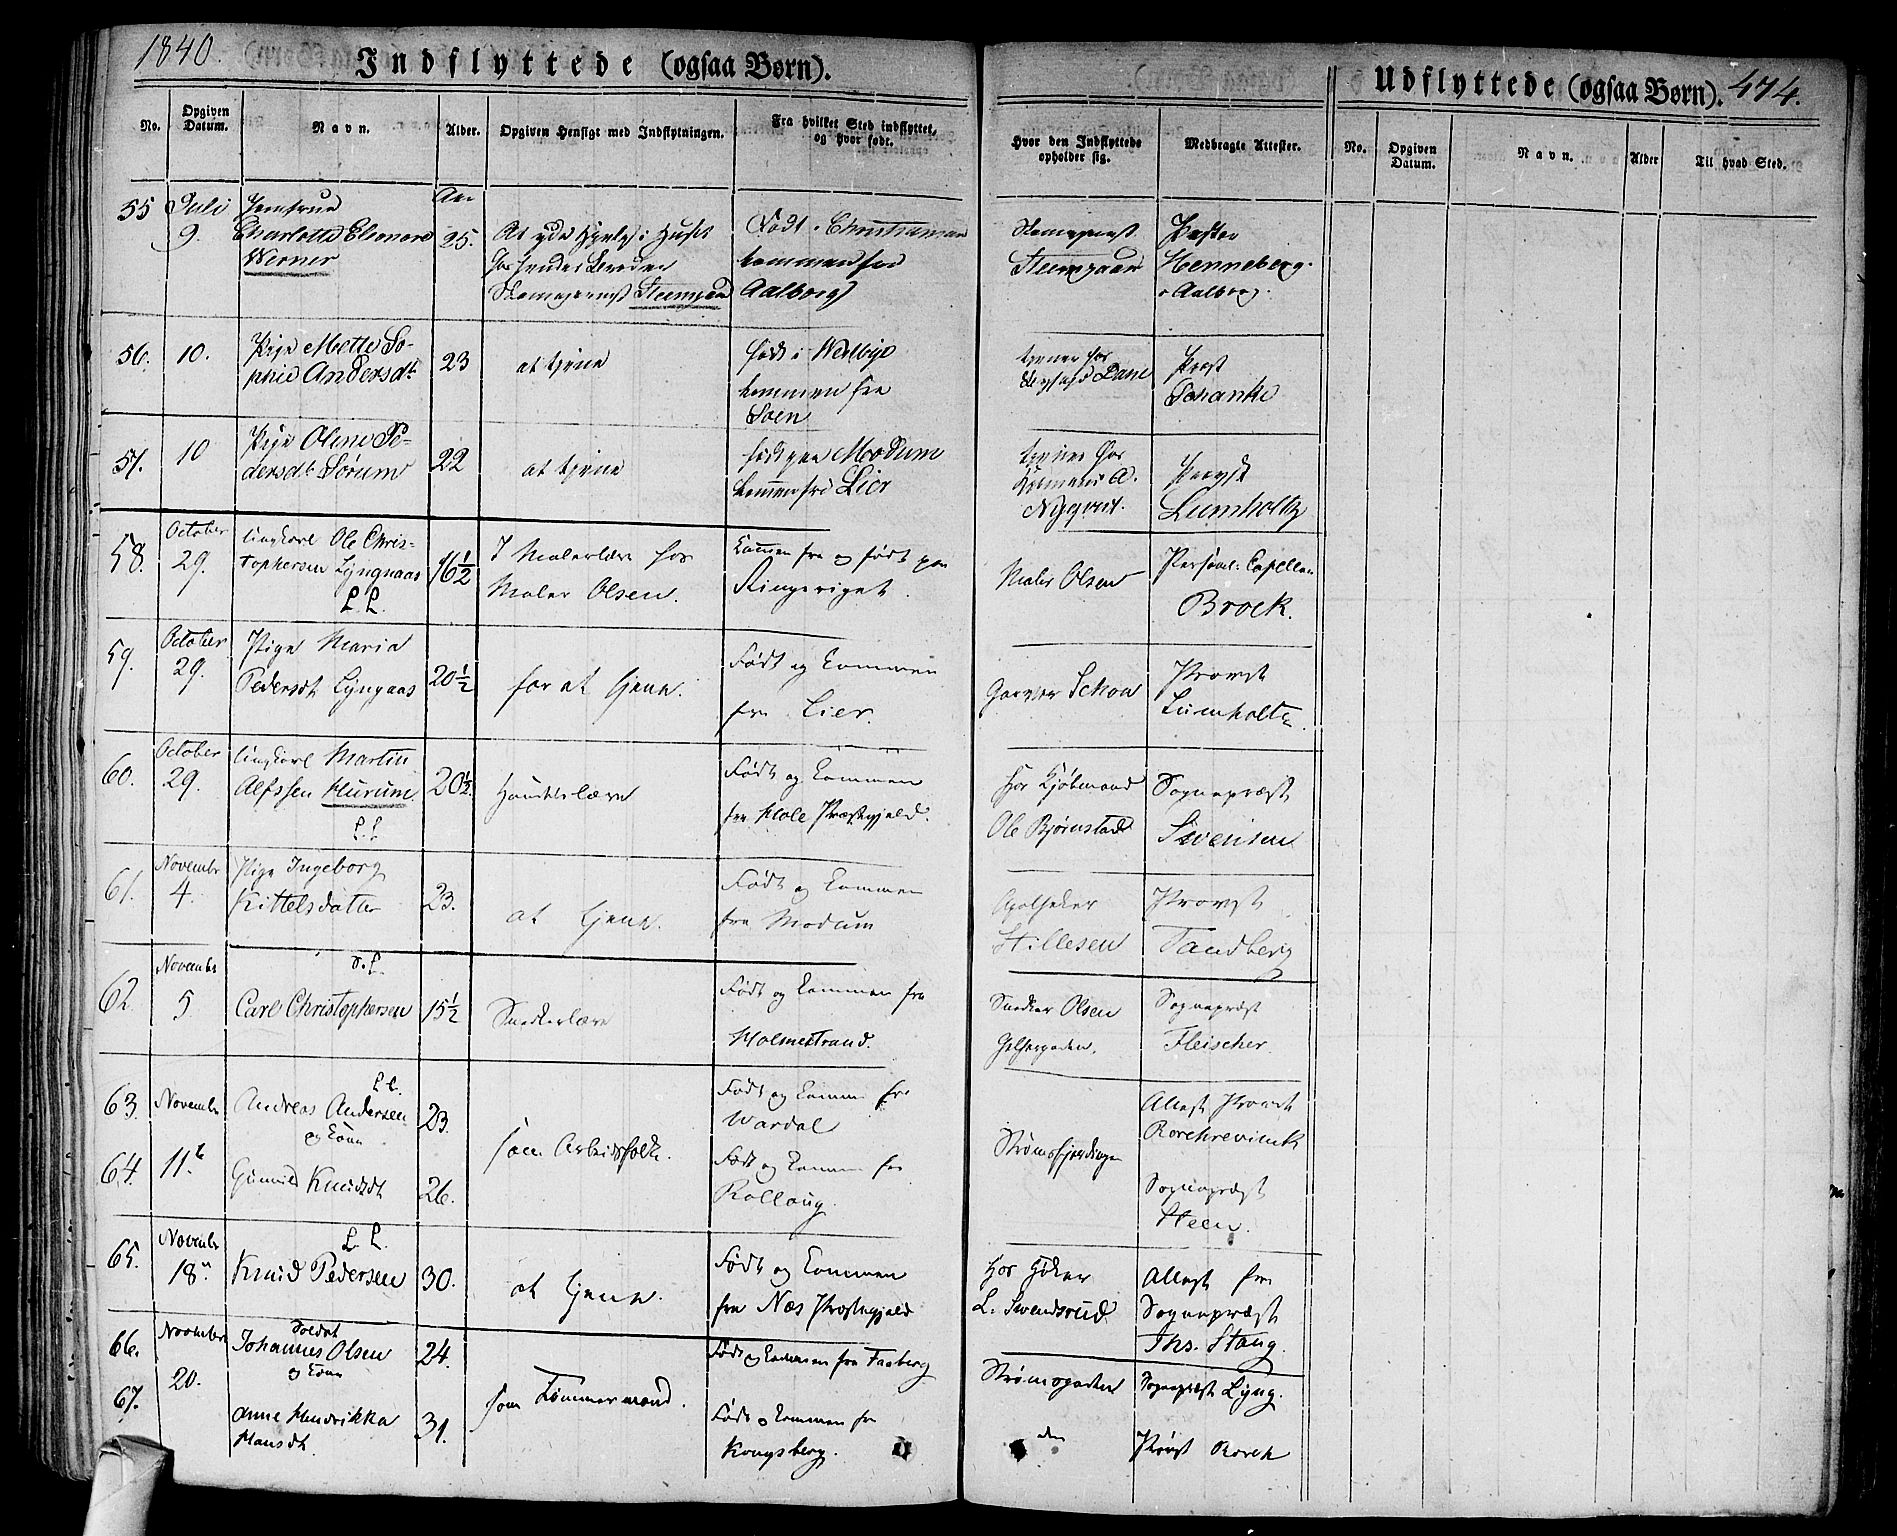 1840.
Indflyttede (ogsaa Børn).
Udflyttede (ogsaa Børn). 474.
No.
Opgiven Datum.
Navn.
Alder.
Opgiven Hensigt med Indflytningen.
Fra hvilket Sted indflyttet, og hvor født.
Hvor den Indflyttede opholder sig.
Medbragte Attester.
No.
Opgiven Datum.
Navn.
Alder
Til hvad Sted.
55 Juli
9. Charlotte Eleonore 25. Født i Christiansand
Werner kommen fra Henneberg
Aalborg i Aalborg.
56. 10. Pige Mette So- 23 at tjene født i Wedbye tjener hos Prost
phie Andersdt. kommen fra Dane Schanke
57. 10 Pige Oline Pe- 22 at tjene født paa Modum tjener hos Provst
dersdt Sørum kommen fra Lier Nyqvist. Lumholtz
58. October 29. Ungkarl Ole Chris- 16½ I Malerlære hos Kommen fra og født paa Maler Olsen Personel: Capellan
tophersen Lyngaas Maler Olsen. Ringeriget. Brock.
L L.
59. October 29. Pige Maria 20½ for at tjene. Født og kommen Garver Schou Provst
Pedersdt Lyngaas fra Lier. Lumholtz
60. October 29. Ungkarl Martin 20½. Handelslære Født og kommen hos Kjøbmand Sognepræst
Alfssen Hurum. fra Hole Præstegjeld. Ole Bjørnstad Svensen
L.L
61. Novembr 4. Pige Ingeborg 23. at tjene. Født og kommen Apotheker Provst
Kittelsdatter fra Modum Stillesen Tandberg
62. Novembr 5 Carl Christophersen 15½ Snedkerlære Født og kommen fra Snedker Olsen Sognepræst
Holmestrand. Fleischer.
63. Novembr Andreas Andersen 23. som Arbeidsfolk. Født og komm. fra Attest Provst
og Kone Wardal
64. 11te Gunild Knudsdt 26. Født og kommen fra Sognepræst
Rollaug. Steen.
65. Novembr 18. L L.
Knud Pedersen 30. at tjene. Født og kommen hos Høker Attest fra
fra Næs Præstegjeld L. Svendsrud Sognepræst
Ths. Stang.
66. Novembr 20. Soldat
Johannes Olsen 24. som Tømmermand. Født og kommen fra Faaberg Strømsgaden Sognepræst Lyng.
og Kone
67. Anne Hendrikka 31. Født o kommen fra Provst
Hansdt. Kongsberg.